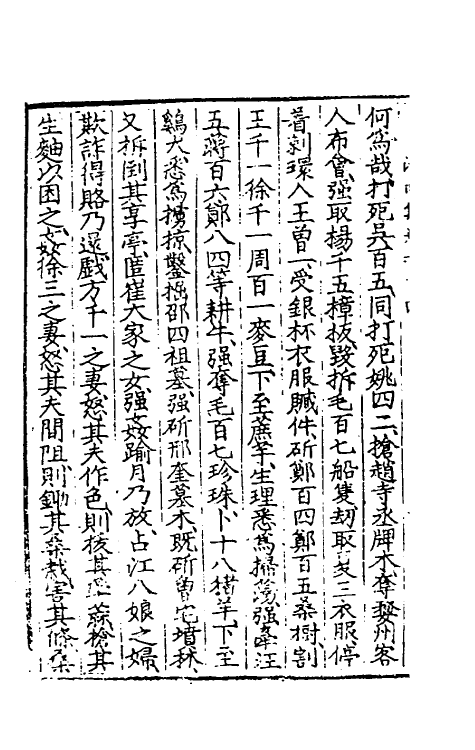 何爲哉打死吳百五同打死姚四二搶趙寺丞牌木奪婺州客
人布曾强取楊千五樟板毀拆毛百七船隻刼取三衣服停
着剥環人王曾一受銀杯衣服贓仵斫鄭百四鄭百五桑樹割
王千一徐千一周百一麥豆下至蔗芋生理悉爲掃蕩强牽汪
五蔣百六鄭八四等耕牛强奪毛百七珍珠卜十八猪羊下至
鷄犬悉爲擄掠鑿掘邵四祖墓强斫邢奎墓木既斫曽宅墳林
又拆倒其享亭匿崔大家之女强姦踰月乃放占江八娘之婦
欺詐得賂乃還戲方千一之妻怒其夫作色則核其蒜搶其
生麯以困之姦徐三之妻怒其夫間阻則鋤其桑栽害其條桑